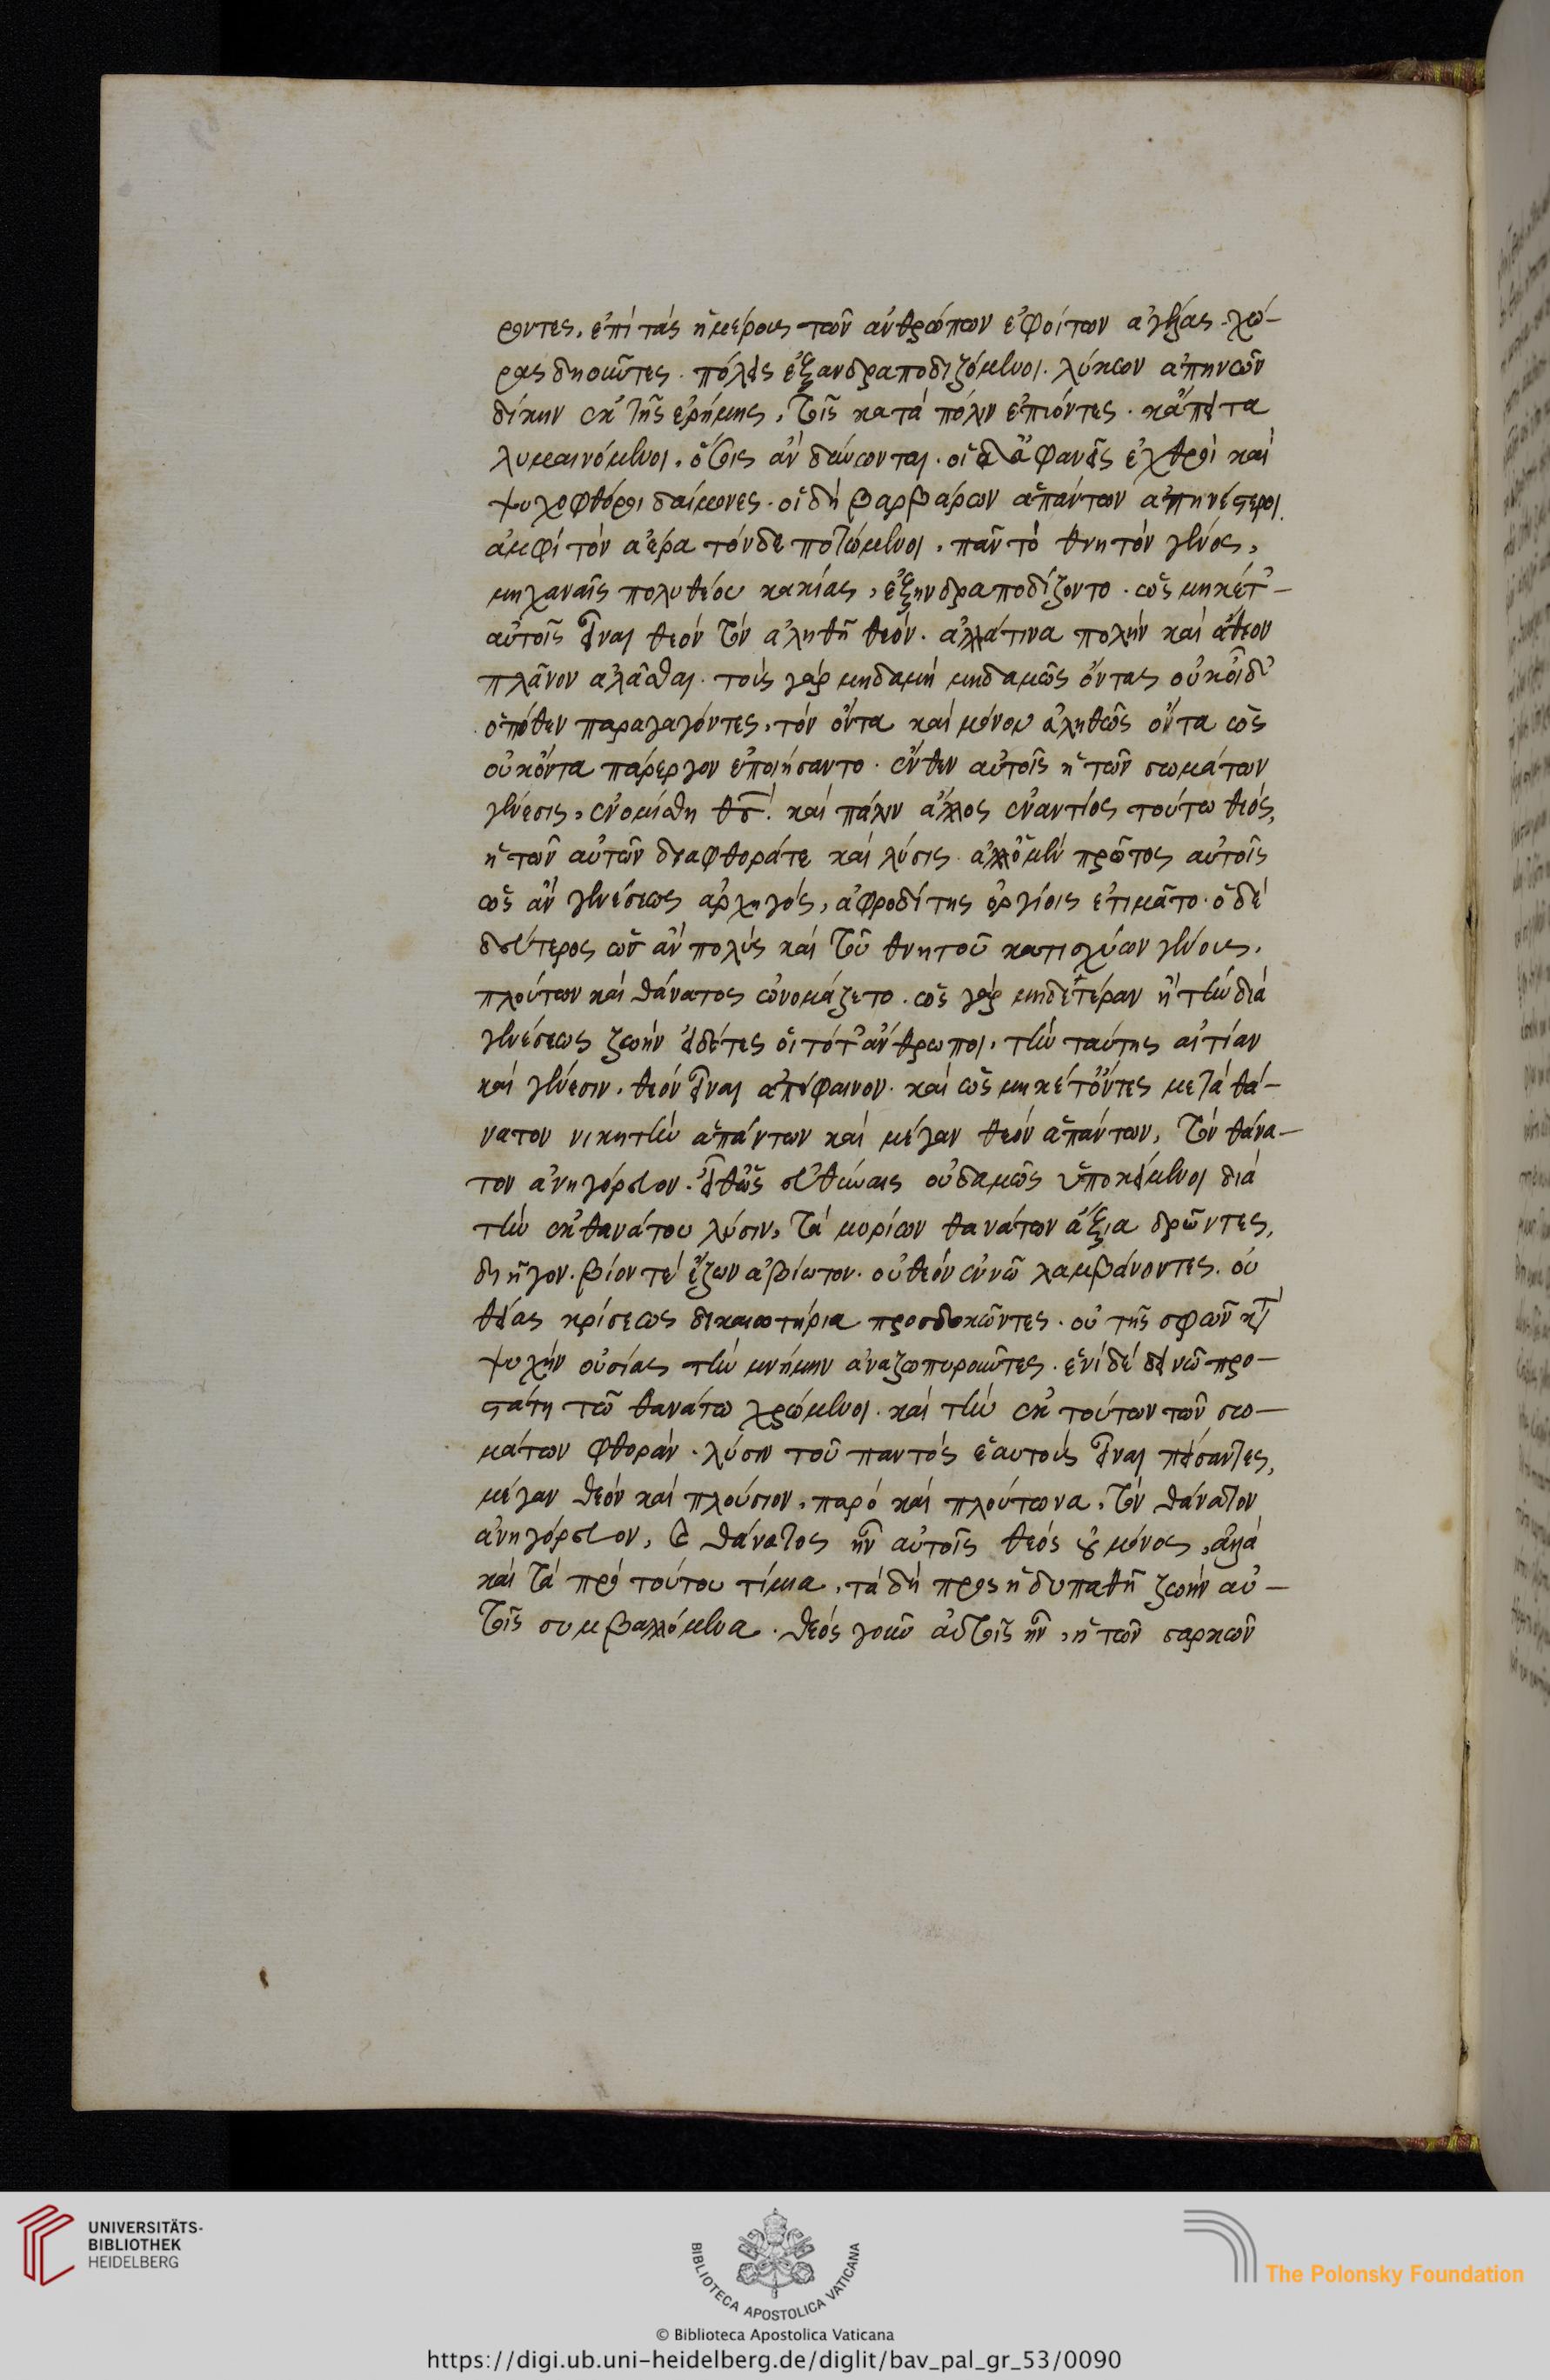 ροντες, ἐπὶ τὰς ἡμέρους τῶν ἀνθρώπων ἐφοίτων ἀγέλας. χώ-
ρας δηοῦντες. πόλεις ἐξανδραποδιζόμενοι. λύκων ἀπηνῶν
δίκην ἐκ τῆς ἐρήμης, τοῖς κατὰ πόλιν ἐπιόντες. κἄπειτα
λυμαινόμενοι, οὕστις ἂν
ἀφανεῖς ἐχθροὶ καὶ
ψυχοφθόροι δαίμονες. οἱ δὴ βαρβάρων ἁπάντων ἀπηνέστεροι.
ἀμφὶ τὸν ἀέρα τόνδε ποτώμενοι, πᾶν τὸ θνητὸν γένος,
μηχαναῖς πολυθέου κακίας, ἐξηνδραποδίζοντο. ὡς μηκέτ'-
αὐτοῖς εἶναι θεὸν τὸν ἀληθῆ θεόν. ἀλλά τινα πολὴν καὶ ἄθεον
πλάνον ἀλᾶσθαι. τοὺς γὰρ μηδαμῆ μηδαμῶς ὄντας οὐκοῖδ'
ὁπόθεν παραγαγόντες, τὸν ὄντα καὶ μόνον ἀληθῶς ὄντα ὡς
οὐκόντα πάρεργον ἐποιήσαντο. ἔνθεν αὐτοῖς ἡ τῶν σωμάτων
γένεσις, ἐνομίσθη θς. καὶ πάλιν ἄλλος ἐναντίος τούτω θεός,
ἡ τῶν αὐτῶν διαφθοράτε καὶ λύσις. ἀλλ' ὁ μὲν πρῶτος αὐτοῖς
ὡς ἂν γενέσεως ἀρχηγός, ἀφροδίτης ὀργίοις ἐτιμᾶτο. ὁ δὲ
δεύτερος ὡς ἂν πολὺς καὶ τοῦ θνητοῦ κατισχύων γένους,
πλούτων καὶ θάνατος ὠνομάζετο. ὡς γὰρ μηδετέραν ἢ τὴν διὰ
γενέσεως ζωὴν εἰδότες οἱ τότ' ἄνθρωποι, τὴν ταύτης αἰτίαν
καὶ γένεσιν, θεὸν εἶναι ἀπέφαινον. καὶ ὡς μηκέτ' ὄντες μετὰ θά-
νατον νικητὴν ἁπάντων καὶ μέγαν θεὸν ἁπάντων, τὸν θάνα-
τον ἀνηγόρευον. εἶθ' ὡς εὐθύναις οὐδαμῶς ὑποκείμενοι διὰ
τὴν ἐκ θανάτου λύσιν, τὰ μυρίων θανάτων ἄξια δρῶντες,
διῆγον. βίον τὲ ἔζων ἀβίωτον. οὐ θεὸν ἐν νῶ λαμβάνοντες. οὐ
θείας κρίσεως δικαιωτήρια προσδοκῶντες. οὐ τῆς σφῶν κτ
ψυχὴν οὐσίας τὴν μνήμην ἀναζωπυροῦντες. ἑνὶ δὲ δεινῶ προ-
στάτη τῶ θανάτω χρώμενοι. καὶ τὴν ἐκ τούτων τῶν σω-
μάτων φθορὰν. λύσιν τοῦ παντὸς ἑαυτοὺς εἶναι πείσαντες,
μέγαν θεὸν καὶ πλούσιον, παρὸ καὶ πλούτωνα, τὸν θάνατον
ἀνηγόρευον, ὁ θάνατος ἦν αὐτοῖς θεὸς οὐ μόνος, ἀλλὰ
καὶ τὰ πρὸ τούτου τίμια, τὰ δὴ προς ἡδυπαθῆ ζωὴν αὐ-
τοῖς συμβαλλόμενα. θεὸς γοῦν αὐτοῖς ἦν, ἡ τῶν σαρκῶν
UNIVERSITÄTS-
BIBLIOTHEK
HEIDELBERG
BIBLIOTECA APOSTOLICA VATICANA
The Polonsky Foundation
© Biblioteca Apostolica Vaticana
https://digi.ub.uni-heidelberg.de/diglit/bav_pal_gr_53/0090